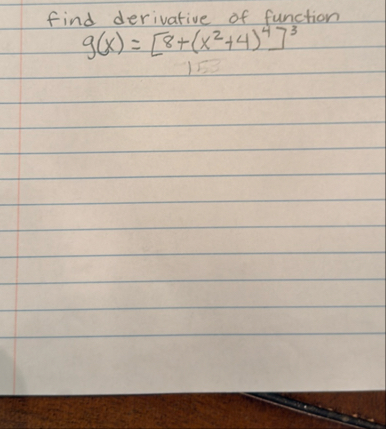 find derivative of function
g(x) = [8+(x²+4)⁴]³
153